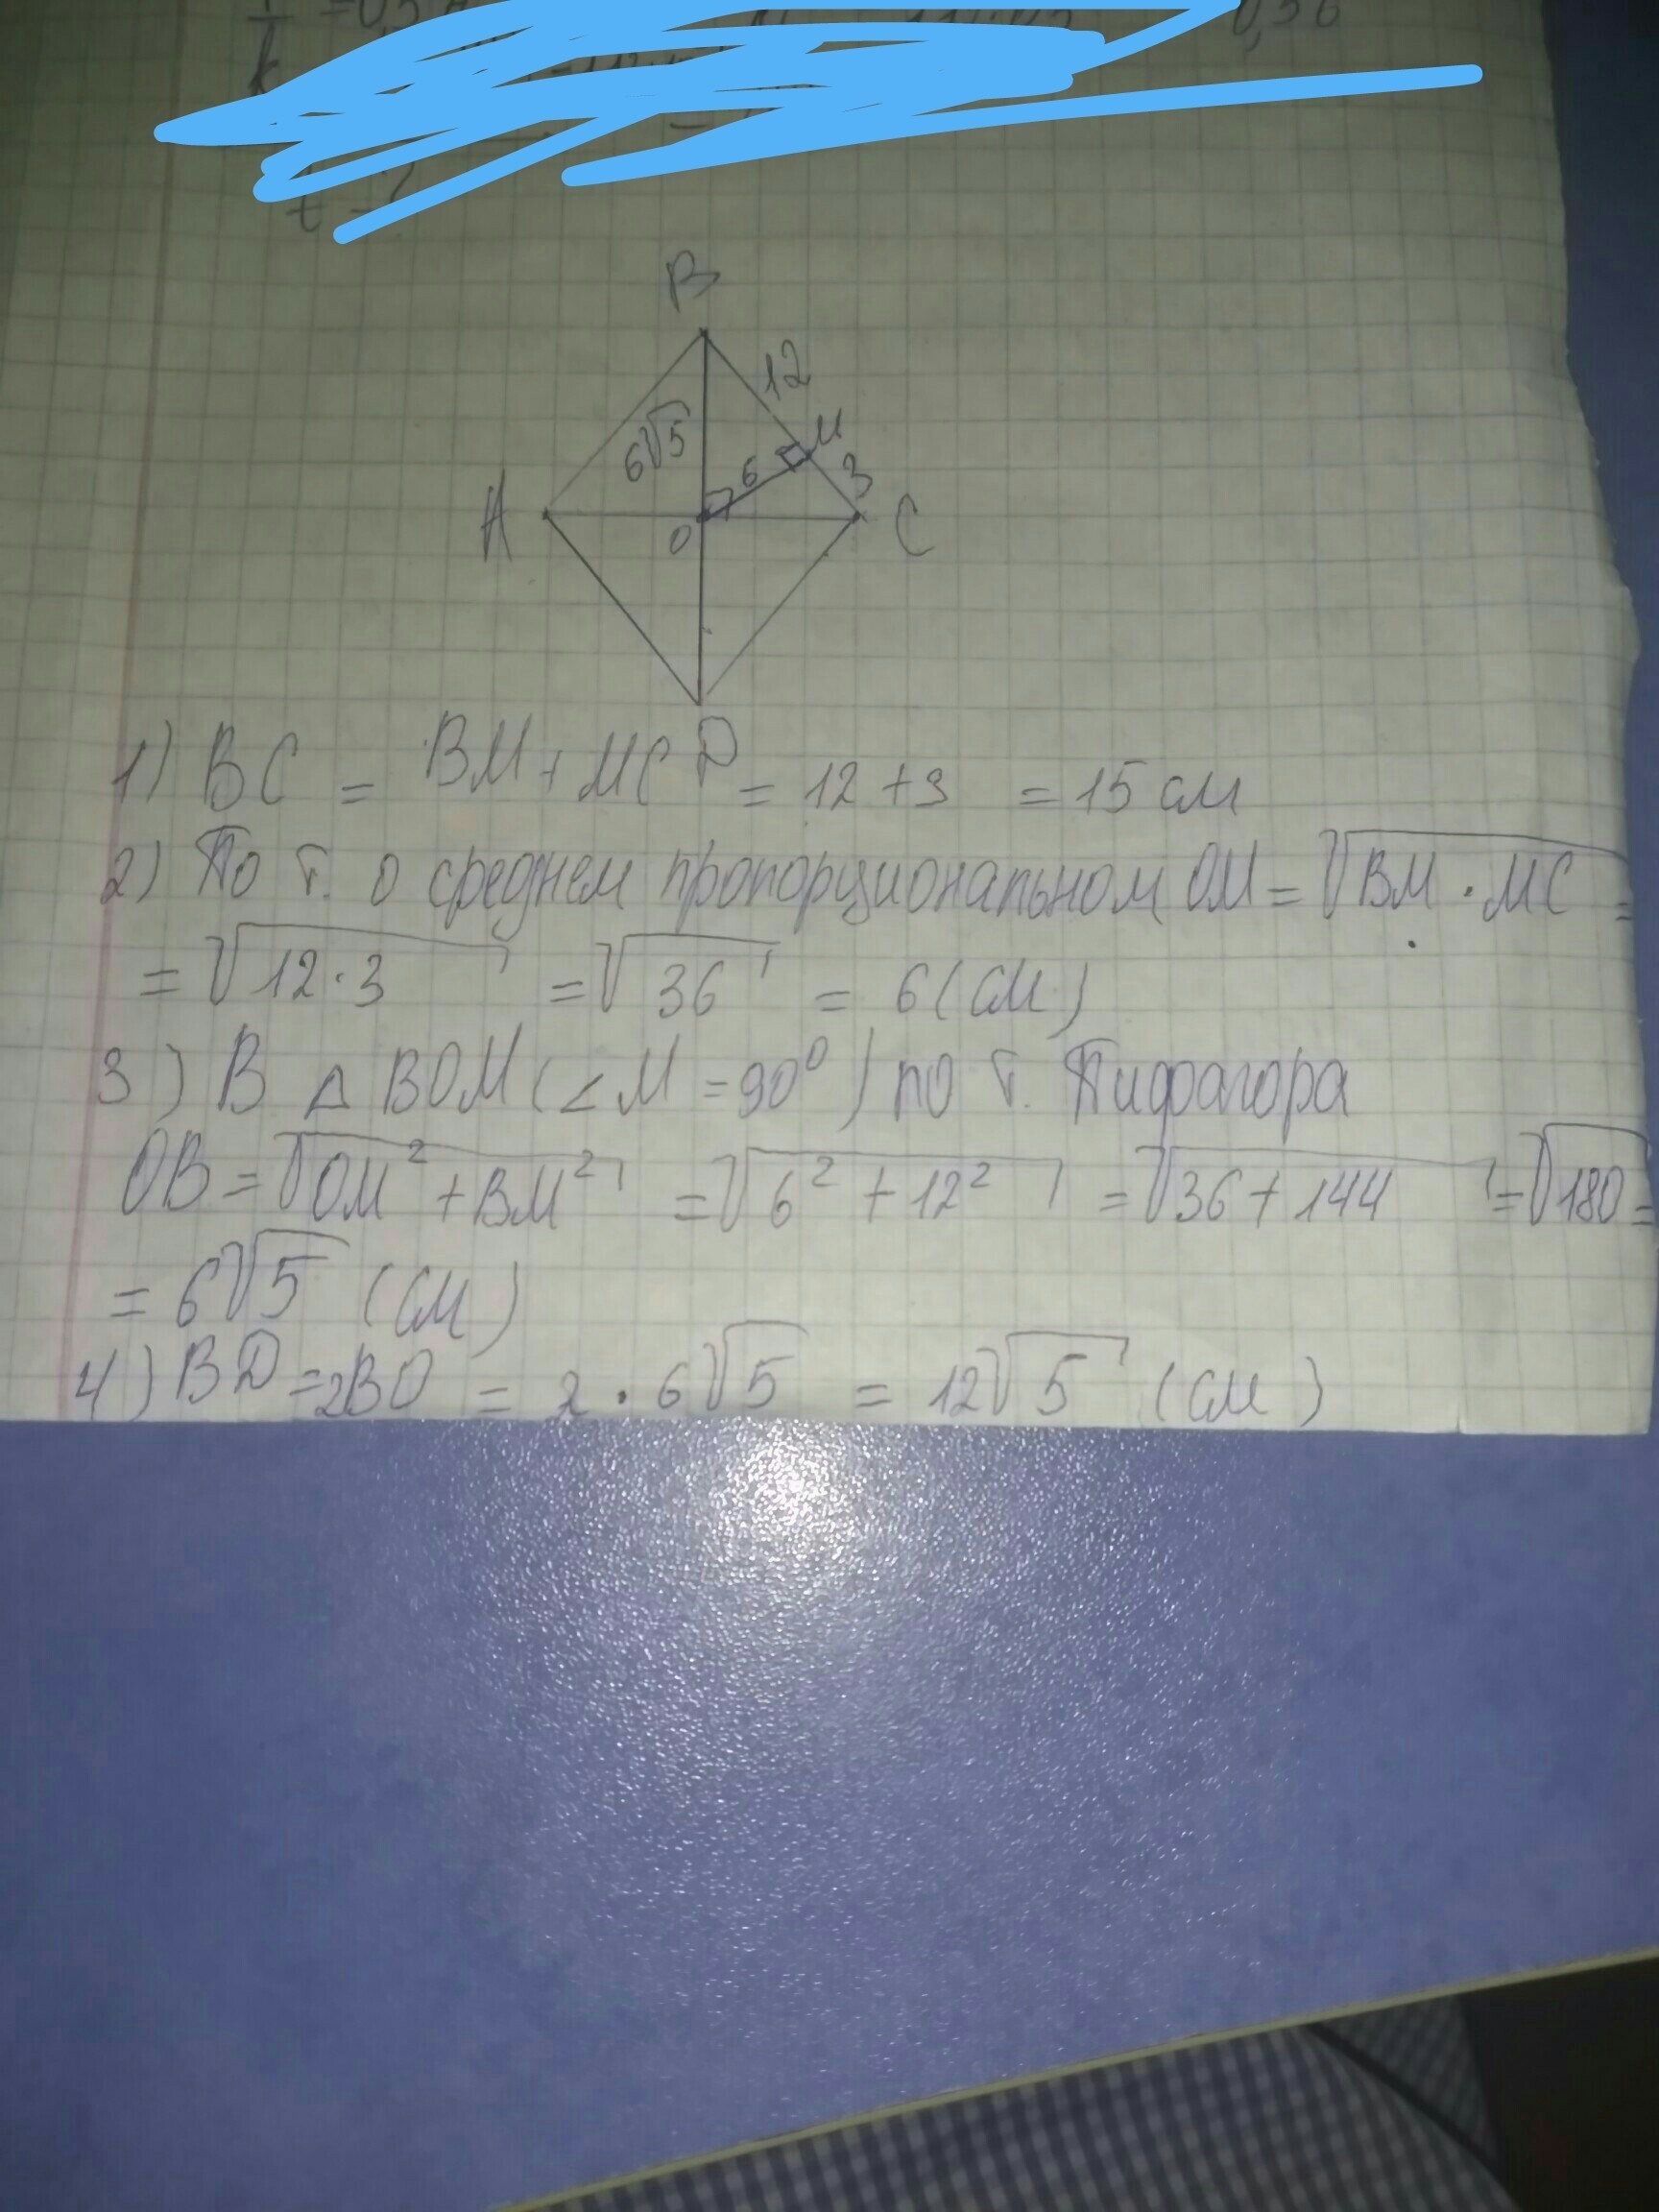 0,36
B
12
6√5
M
6
3
A
O
C
D
1) BC = BM + MC = 12 + 3 = 15 см
2) По т. о среднем пропорциональном OM = √BM · MC =
= √12 · 3 = √36 = 6 (см)
3) В △ BOM (∠ M = 90⁰) по т. Пифагора
OB = √OM² + BM² = √6² + 12² = √36 + 144 = √180 =
= 6√5 (см)
4) BD = 2BO = 2 · 6√5 = 12√5 (см)